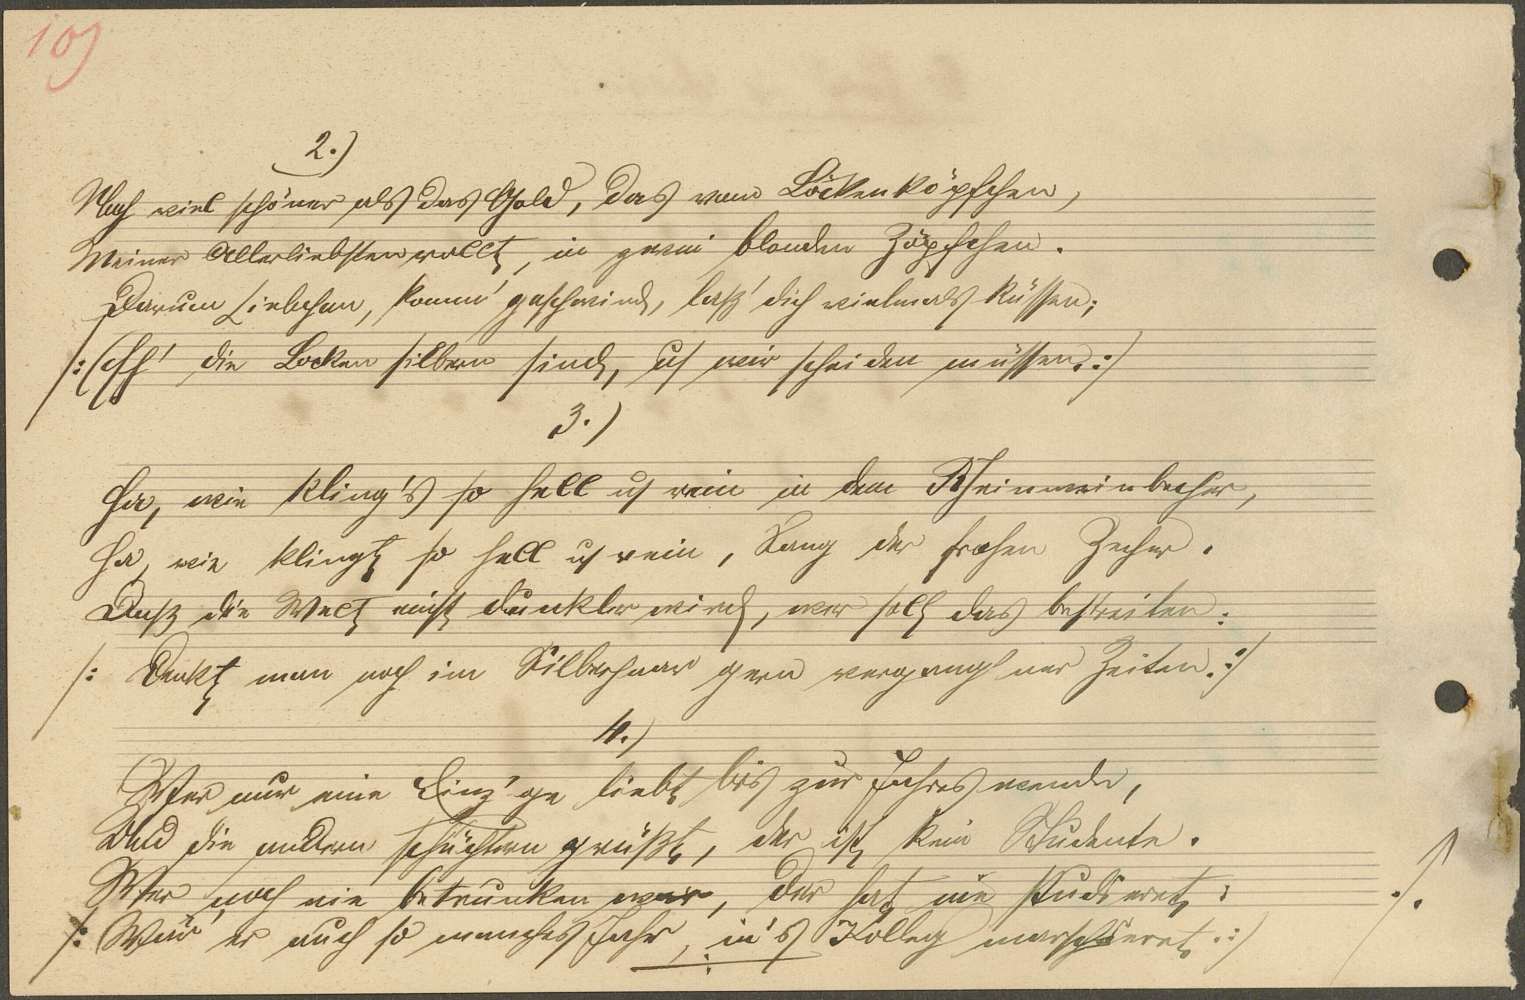 109
2.)
Noch viel schöner als das Gold, das vom Lockenköpfchen,
Meiner Allerliebsten rollt, in zwei blonden Zöpfchen.
Darum Liebchen, komm' geschwind, laß' dich vielmals küssen;
/: Eh' die Locken silbern sind, u wir scheiden müssen. :/
3.)
Ha, wie kling's so hell u rein in dem Rheinweinbecher,
Ha, wie klingt so hell u rein, Sang der frohen Zecher.
Daß die Welt nicht dunkler wird, wer soll das bestreiten:
/: Denkt man noch im Silberhaar gern vergang'ner Zeiten. :/
4.)
Wer nur eine Einz'ge liebt bis zur Jahreswende,
Und die andern schüchtern grüßt, der ist kein Studente.
Wer noch nie betrunken war, der hat nie studieret;
/: Wär' er auch so manches Jahr, in's Kolleg marschieret. :/